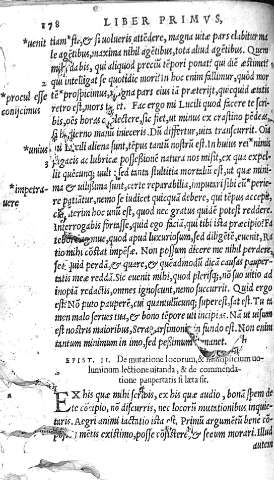 178 LIBER PRIMVS,
*uenit tiam est, & si volueris attēdere, magna uitæ pars elabitur ma
le agētibus, maxima nihil agētibus, tota aliud agētibus. Quem
mihi dabis, qui aliquod preciū tēpori ponat? qui diē æstimet?
qui intelligat se quotidie mori? In hoc enim fallimur, quòd mor
*procul esse tē *prospicimus, magna pars eius iā præterijt, quicquid ætatis
conijcimus retro est, mors tenet. Fac ergo mi Lucili quod facere te scri-
bis, oēs horas complectere, sic fiet, ut minus ex crastino pēdeas,
si hodierno manū inieceris. Dū differtur, uita transcurrit. Oīa
*unius mi Lucili aliena sunt, tēpus tantū nostrū est. In huius rei *nimis
fugacis ac lubricæ possessionē natura nos misit, ex qua expel-
lit quicunq; uult: sed tanta stultitia mortaliū est, ut quæ mini-
*impetra- ma & uilissima sunt, certe reparabilia, imputari sibi cū *perie-
uere re patiātur, nemo se iudicet quicquā debere, qui tēpus accepit,
cū interim hoc unū est, quod nec gratus quidē potest reddere.
Interrogabis fortasse, quid ego faciā, qui tibi ista præcipio? Fa
tebor ingenue, quod apud luxuriosum, sed diligētē, euenit, Ra
tio mihi cōstat impēsæ. Non possum dicere me nihil perdere,
sed quid perdā, & quare, & quēadmodū dicā: causas pauper-
tatis meæ reddā. Sic euenit mihi, quod plerisq;, nō suo uitio ad
inopiā redactis, omnes ignoscunt, nemo succurrit. Quid ergo
est? Nō puto pauperē, cui quantulūcunq; superest, sat est. Tu ta
men malo serues tua, & bono tēpore uti incipias. Nā ut uisum
est nostris maioribus, Sera parsimonia in fundo est. Non enim
tantum minimum in imo, sed pessimum remanet.
EPIST. II. De mutatione locorum, & multiplicium uo-
luminum lectione uitanda, & de commenda-
tione paupertatis si læta sit.
EX his quæ mihi scribis, ex his quæ audio, bonā spem de
te cōcipio, nō discurris, nec locorū mutationibus inquie-
taris. Aegri animi iactatio ista est. Primū argumētū bene cō-
positæ mētis existimo, posse cōsistere, & secum morari. Illud
autem